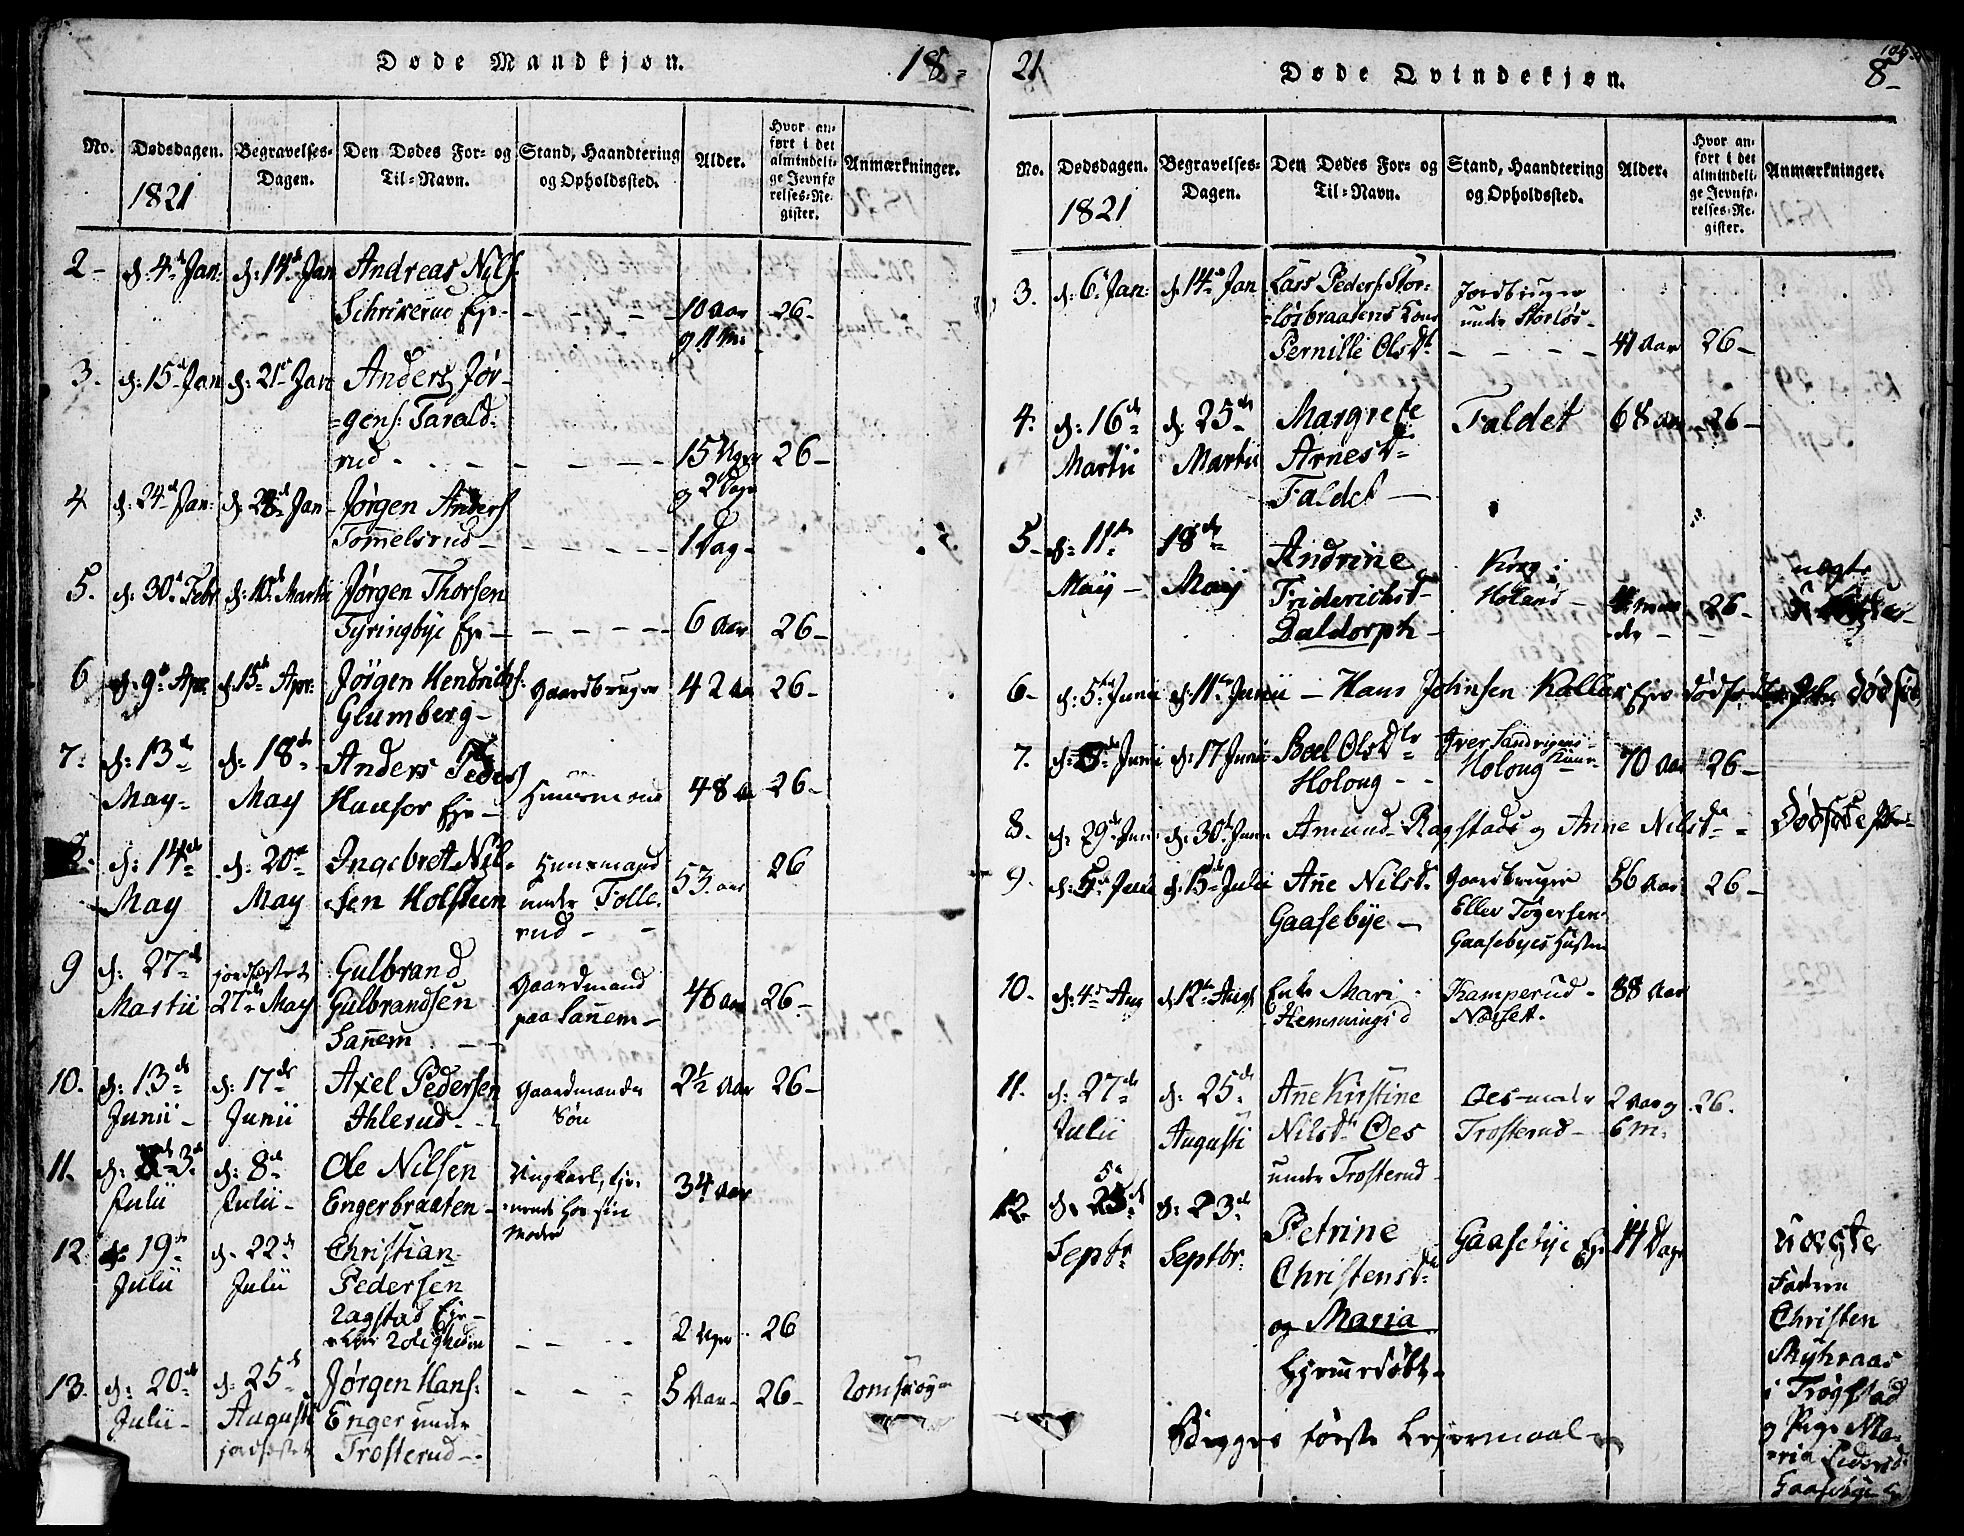 Døde Mandkjøn. 18-
No. Dødsdagen. Begravelses-Dagen. Den Dødes For- og Til-Navn. Stand, Haandtering og Opholdssted. Alder. Hvor anført i det almindelige Jevnførelses-Register. Anmærkninger.
1821
2- d: 4de Jan: d: 14de Jan Andreas Nils:
Schrikerud Eje - - - - 10 Aar 26-
og 11 M:
3. d: 15de Jan d: 21de Jan Anders Jør-
=gens: Tarald-
rud - - - - - 15 Uger 26-
og 2 Dage
4 d: 24de Jan: d: 28de Jan- Jørgen Anders
Tom̄elsrud - - - - 1 Dag-
5. d: 30d Febr d: 10de Martii Jørgen Thorsen
Tyringbye Eje - - - - 6 Aar 26-
6 d: 9de Apr: d: 15de Apr: Jørgen Hendrichs:
Glumberg- Gaardbruger 42 Aa 26-
7: d: 13de d: 18de Anders Peders
May- May Hansor Eje- Huusmand 48 A 26-
8. d: 14de d: 20de Ingebret Nil-
May May sen Holsteen Huusmand under Tolle-
rud - - 53 aar 26
9 d: 27de jordfæstet Gulbrand
Martii 27de May Gulbrandsen Gaardmand
San̄em - - paa San̄em- 46 Aar 26-
10. d: 13de d: 17de Axel Pedersen Gaardmands
Junii- Junii Ihlerud- - Søn 2½ Aar 26-
11. d: 3de d: 8de Ole Nilsen Ungkarl, tje-
Julii Julii- Engerbraaten- nende hos sin
Moder 34 Aar
12 19de d: 22de Christian
Julii Julii Pedersen
Ragstad Eje-
- - - 2 Uger 26
13. d: 20de d: 25de Jørgen Hans: - - - 5 Aar- 26-
Julii- Augusti Enger under
jordfæstet Trosterud-
21 Døde Qvindekjøn. 8-
No. Dødsdagen. Begravelses-Dagen. Den Dødes For- og Til-Navn. Stand, Haandtering og Opholdssted. Alder. Hvor anført i det almindelige Jevnførelses-Register. Anmærkninger.
1821
3. d: 6 Jan: d: 14de Jan Lars Peders: Stor-
=løsbraatens Kone Jordbruger
under Storløs-
Pernille Olsdtr - - - - 41 Aar 26-
4. d: 16de d: 25de Margrete Faldet 68 Aar 26-
Martii Martii Arnesdr
Faldet -
5- d: 11te 18de Andrine
May- May Friderichsdr Krog i
Høland- 26- uægte
Daldorph-
6- d: 5te Junii d: 11te Junii - Hans Johnsen Kollar Eje dødfødt
7. d: Junii d: 17 Junii Boel Olsdtr Iver Sandvigens
Holong - - Holong Kone- 70 Aar 26-
8. d: 29de Juni d: 30de Juni Amund Ragstads og Anne Nilsdr - Dødfødte
9. d: 5te Julii d: 15de Julii An̄e Nilsdr Gaardbruger 56 Aar 26-
Gaasebye- Ellev Tøgersen
Gaasebyes Hustru
10. d: 4de Aug d: 12te Augt Enke Mari Kamperud- 88 Aar
Hemmingsd Nøsset-
11. d: 27de d: 25de An̄e Kirstine Oes under 2 Aar og 26.
Julii Augusti Nilsdr Oes Trosterud- 6 m:
under Trosterud-
12 d: 25de d: 23de Petrine Gaasebye Eje 14 Dage uægte
5te
Septbr Septbr: Christensdr Fadren
og Maria Christen
hjemmedøbt- Myhraas
i Trøgstad
Begges første Lejermaal- og Pige Ma-
ria Pedersd
Gaasebye Eje